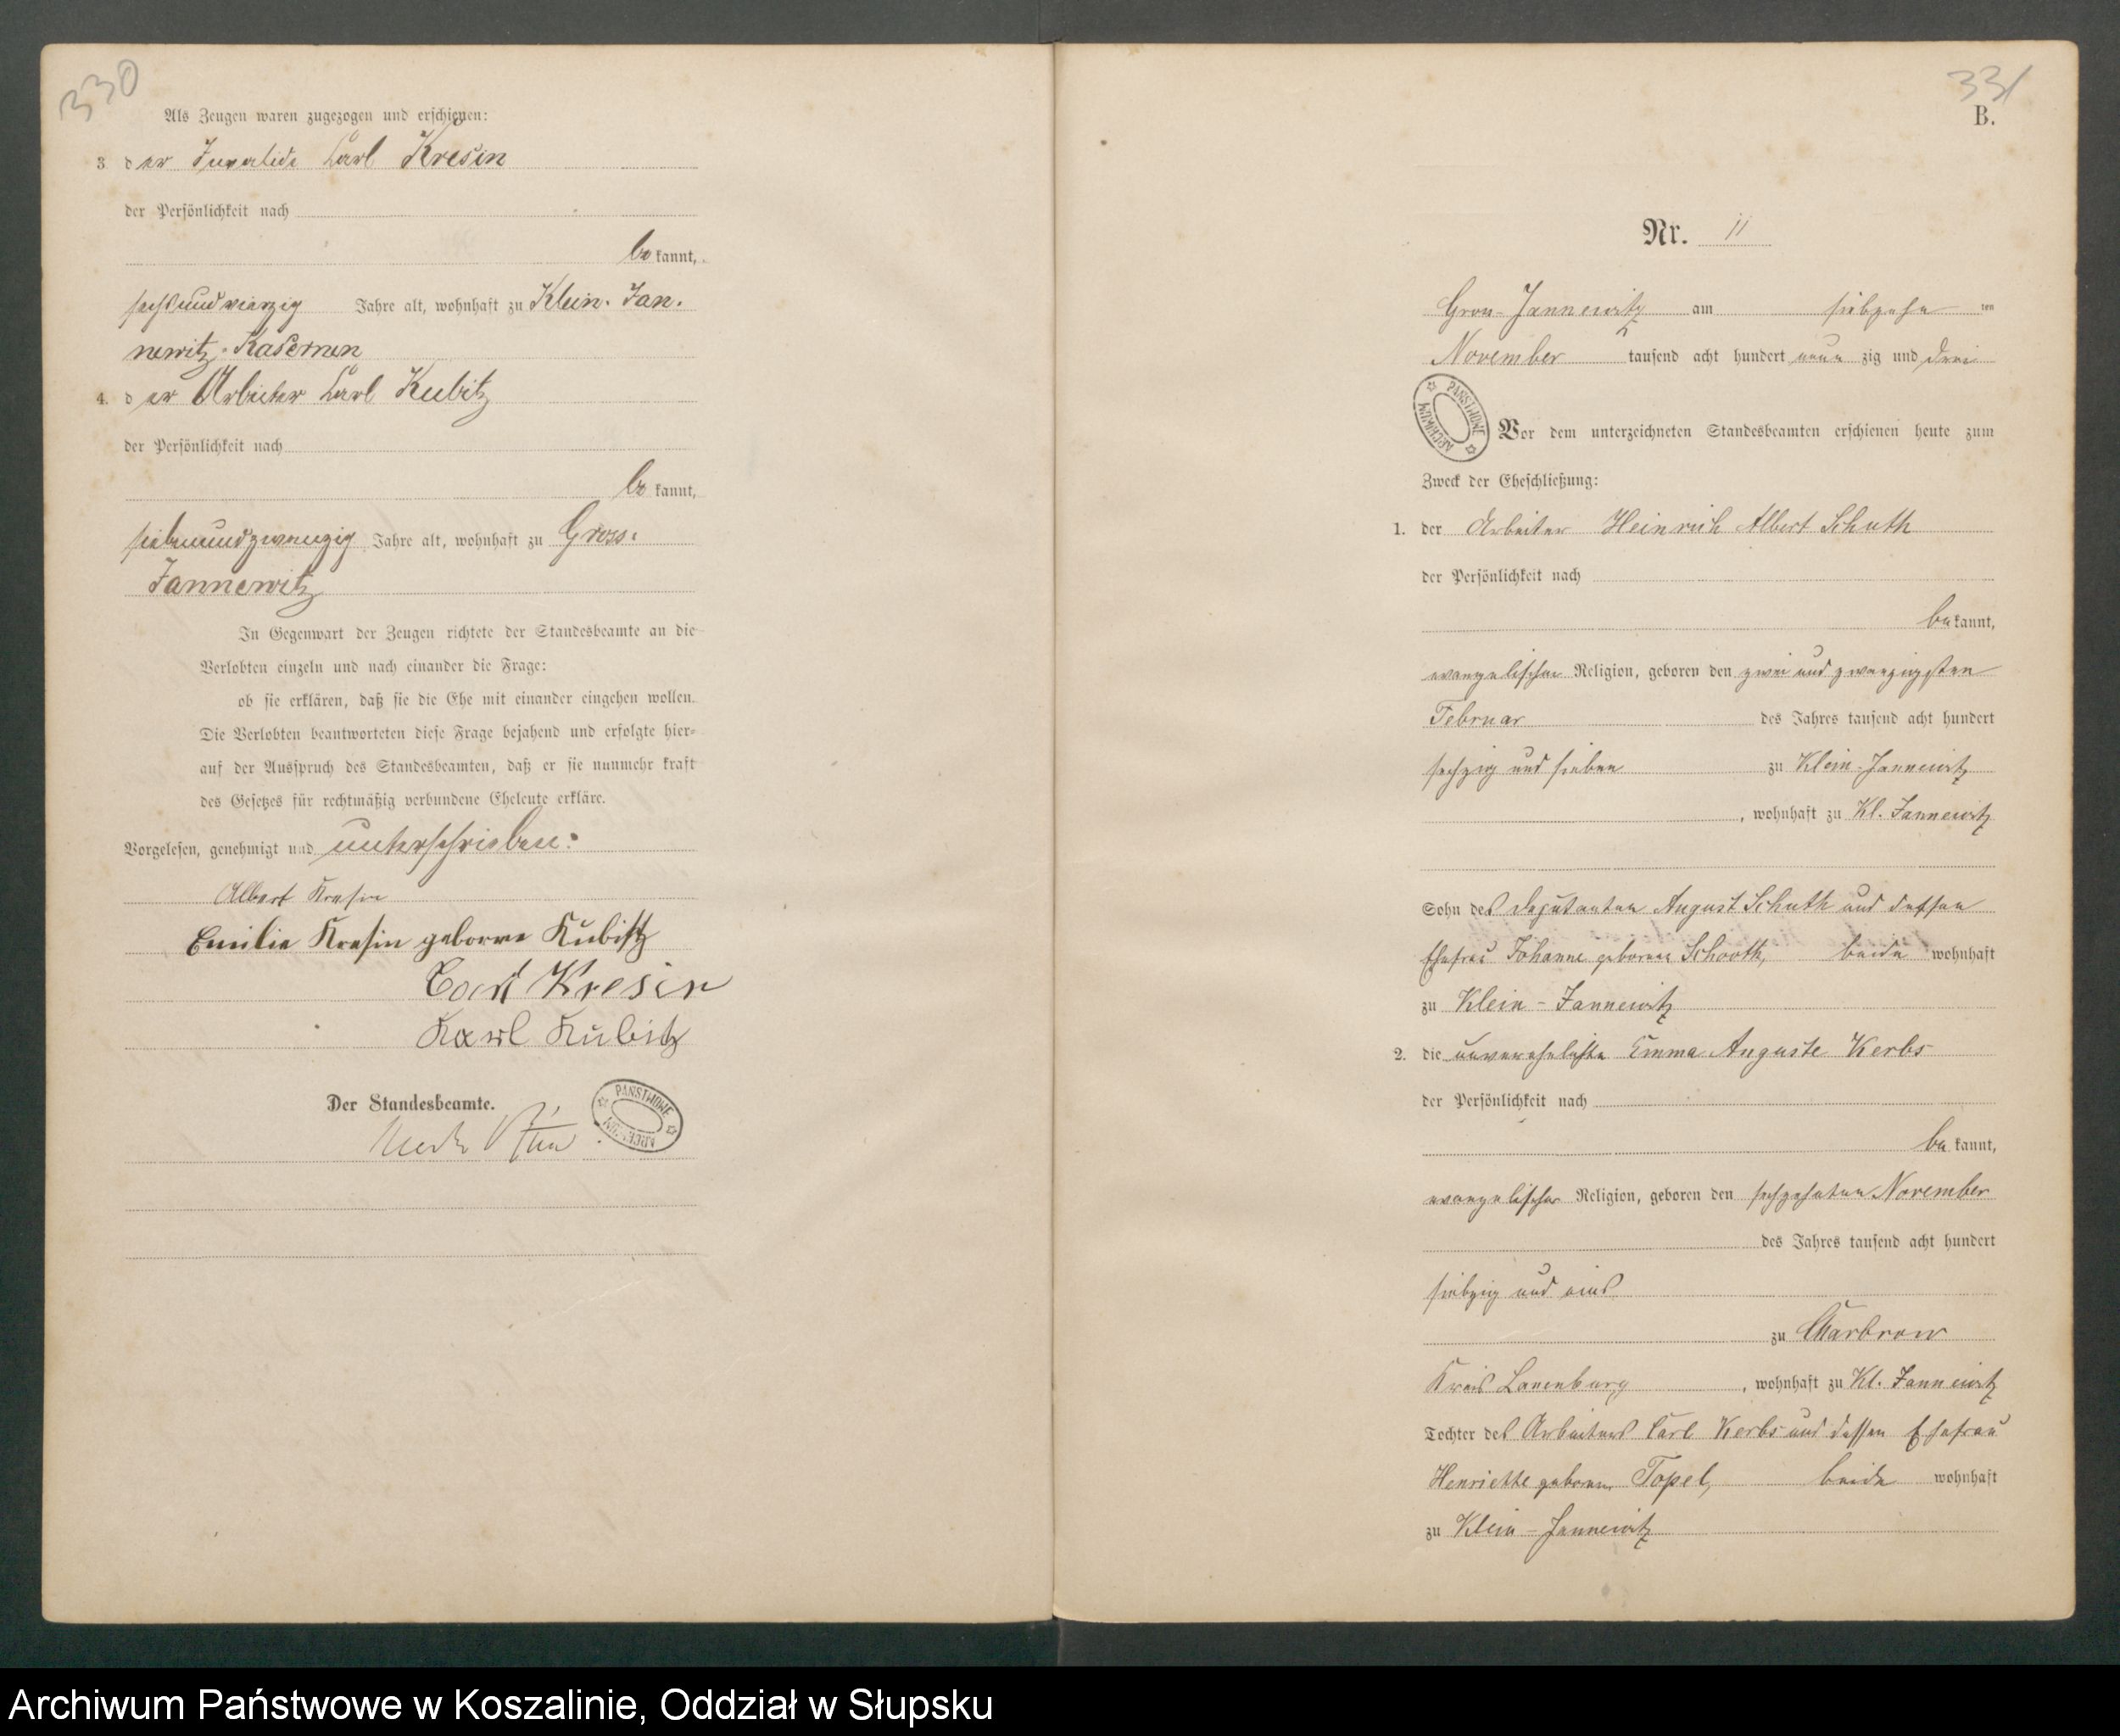 330
Als Zeugen waren zugezogen und erschienen:
3. der Invalide Carl Kresin
der Persönlichkeit nach
be kannt,
sechsundvierzig Jahre alt, wohnhaft zu Klein-Jan-
newitz-Kasernen
4. der Arbeiter Carl Kubitz
der Persönlichkeit nach
be kannt,
siebenundzwanzig Jahre alt, wohnhaft zu Gross-
Jannewitz
In Gegenwart der Zeugen richtete der Standesbeamte an die
Verlobten einzeln und nach einander die Frage:
ob sie erklären, daß sie die Ehe mit einander eingehen wollen.
Die Verlobten beantworteten diese Frage bejahend und erfolgte hier-
auf der Ausspruch des Standesbeamten, daß er sie nunmehr kraft
des Gesetzes für rechtmäßig verbundene Eheleute erkläre.
Vorgelesen, genehmigt und unterschrieben:
Albert Kresin
Emilie Kresin geborne Kubitz
Carl Kresin
Karl Kubitz
Der Standesbeamte.
PANSTWOWE ARCHIWUM
331
B.
Nr. 11
Gross-Jannewitz am siebzehn ten
November tausend acht hundert neun zig und drei
PANSTWOWE ARCHIWUM
Vor dem unterzeichneten Standesbeamten erschienen heute zum
Zweck der Eheschließung:
1. der Arbeiter Heinrich Albert Schuth
der Persönlichkeit nach
be kannt,
evangelischer Religion, geboren den zwei und zwanzigsten
Februar des Jahres tausend acht hundert
sechzig und sieben zu Klein-Jannewitz
, wohnhaft zu Kl. Jannewitz
Sohn des Deputanten August Schuth und dessen
Ehefrau Johanne geborene Schooth, beide wohnhaft
zu Klein-Jannewitz
2. die unverehelichte Emma Auguste Kerbs
der Persönlichkeit nach
be kannt,
evangelischer Religion, geboren den sechzehnten November
des Jahres tausend acht hundert
siebzig und eins
zu Charbrow
Kreis Lauenburg, wohnhaft zu Kl. Jannewitz
Tochter des Arbeiters Carl Kerbs und dessen Ehefrau
Henriette geborene Topel, beide wohnhaft
zu Klein-Jannewitz
Archiwum Państwowe w Koszalinie, Oddział w Słupsku